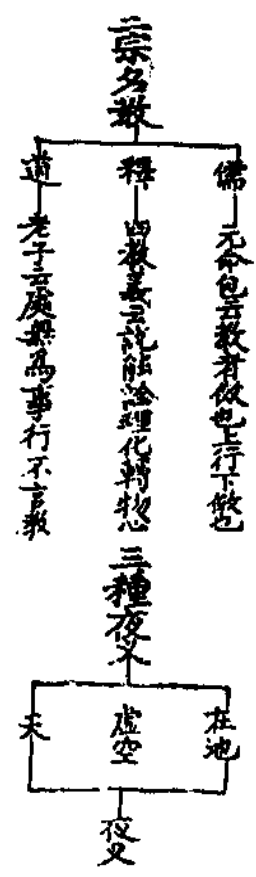 三宗名教
儒
元命包云教者傚也上行下傚也
釋
四教義云説能詮理化轉物心
道
老子云處無爲事行不言教
三種夜叉
在地
虛空
天
夜叉